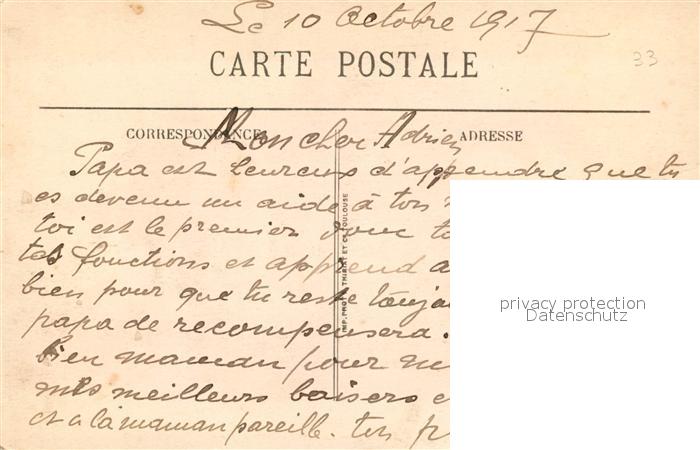 Le 10 Octobre 1917
33
CARTE POSTALE
CORRESPONDANCE
ADRESSE
Mon cher Adrien
Papa est heureux d'apprendre que tu
es devenu un aide à ton
toi est le premier donc
tes fonctions et apprend a
bien pour que tu reste toujou
papa de recompensera.
bien maman pour m
mes meilleurs baisers e
et a la maman pareille. ton p
IMP. PHOT. THIRIAT ET Cie TOULOUSE
privacy protection
Datenschutz